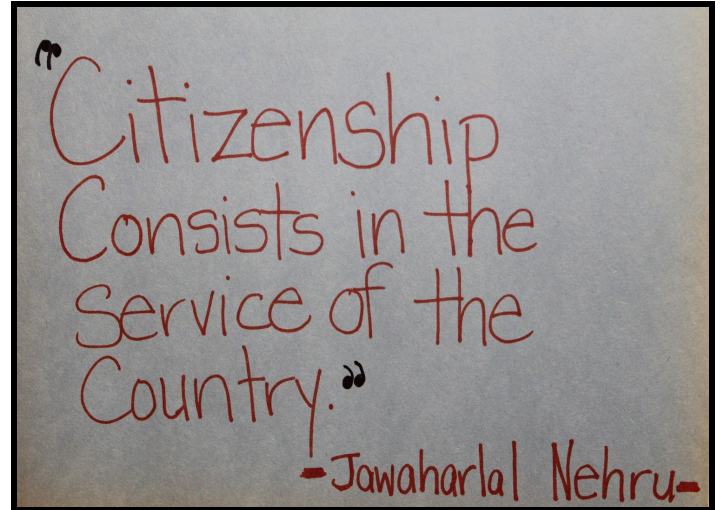 "Citizenship
Consists in the
Service of the
Country."
-Jawaharlal Nehru-